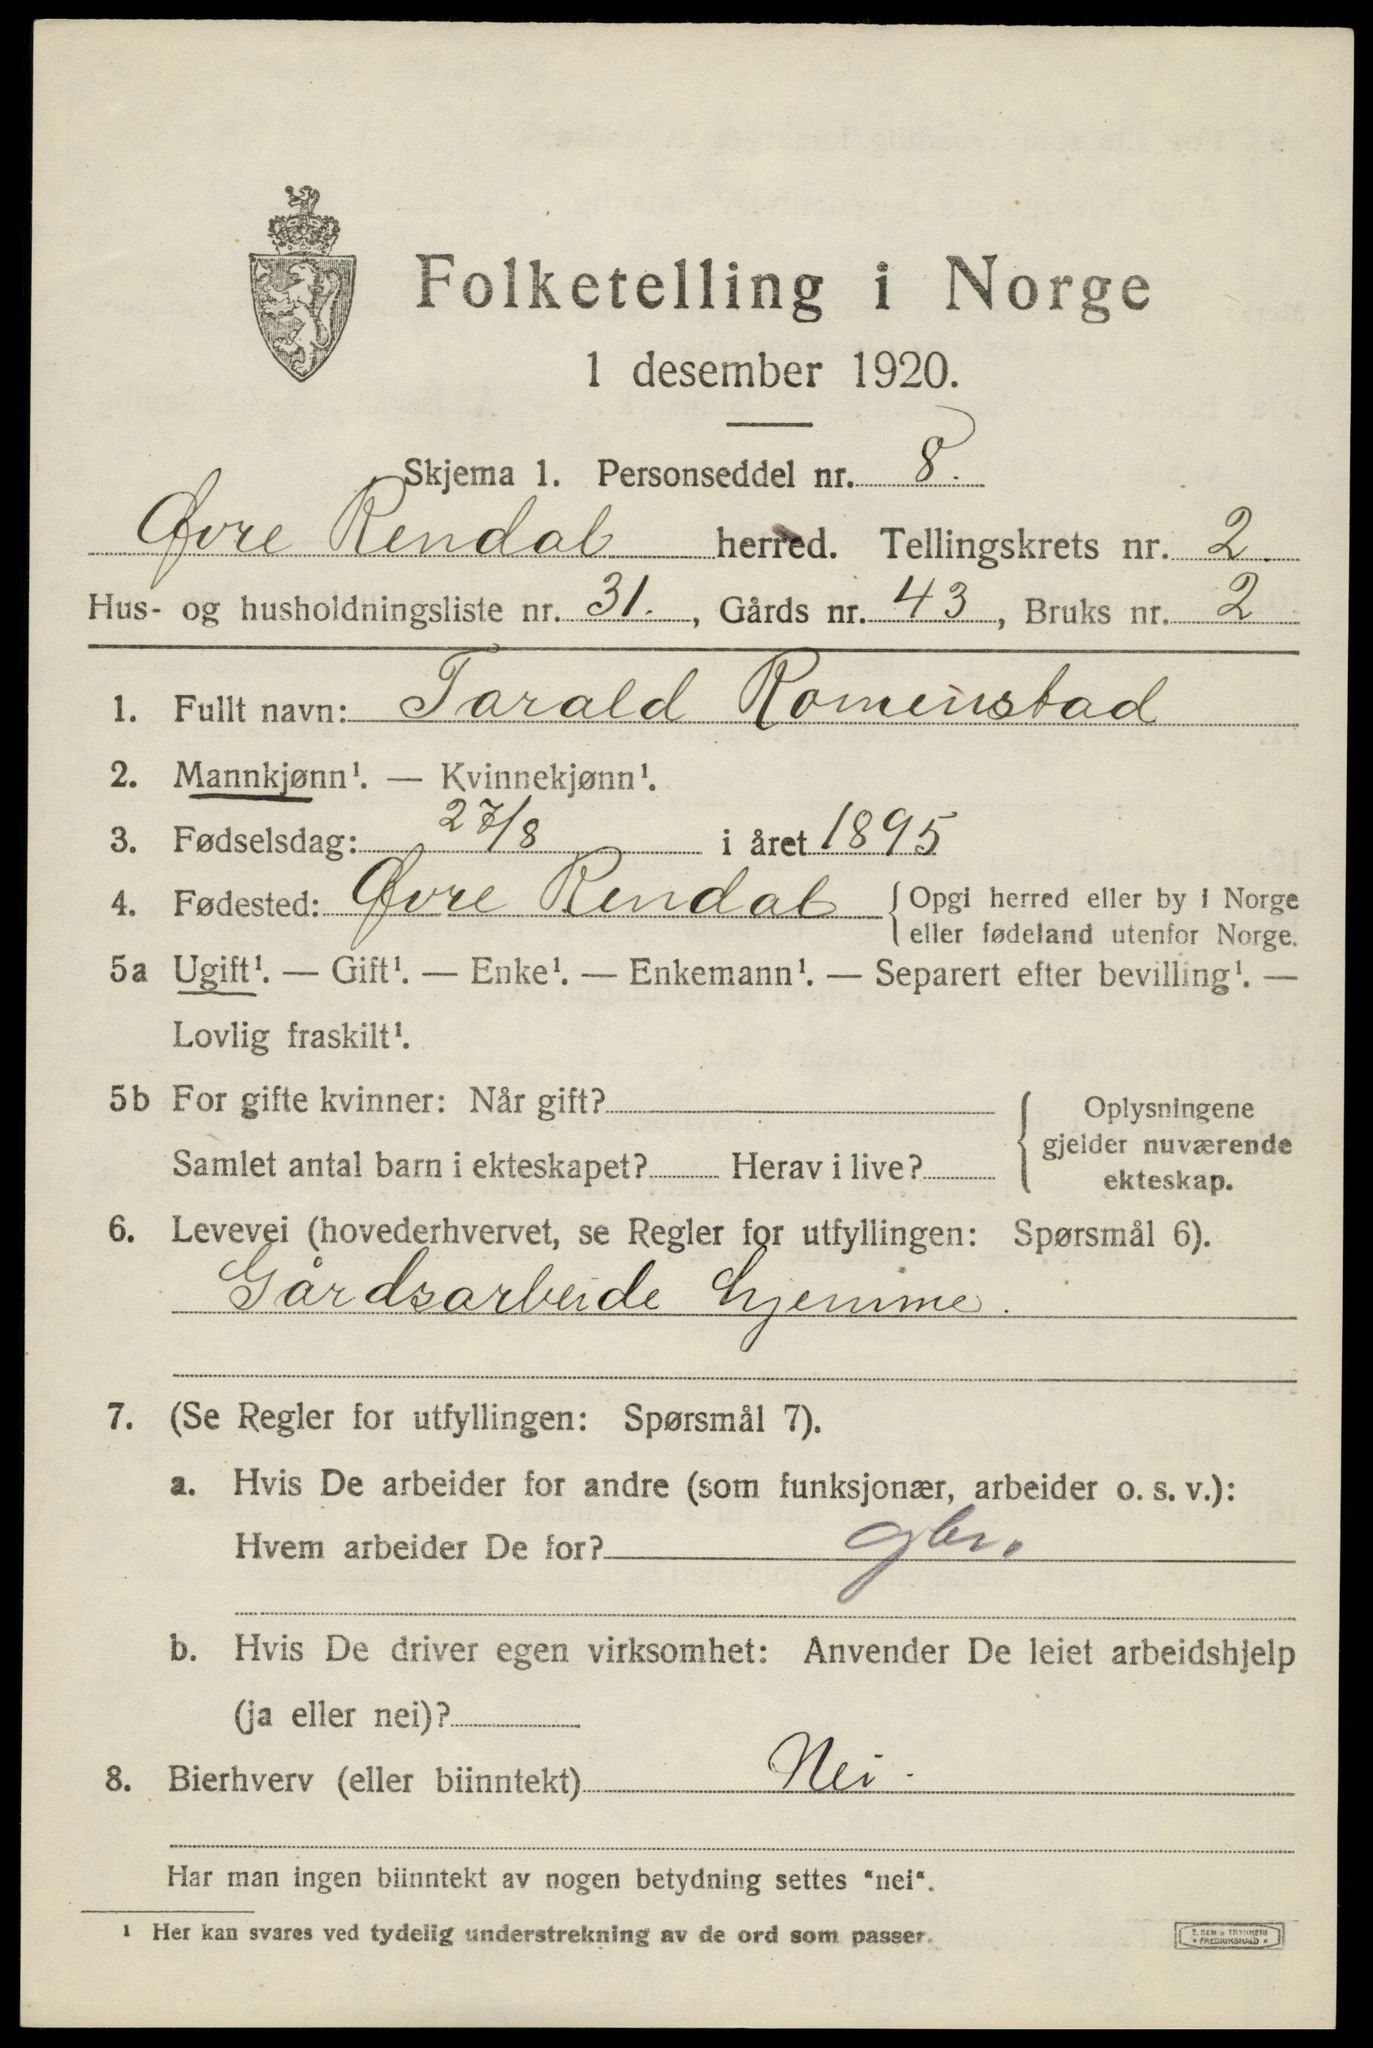 Folketelling i Norge
1 desember 1920.
Skjema 1. Personseddel nr. 8.
Øvre Rendal herred. Tellingskrets nr. 2.
Hus- og husholdningsliste nr. 31., Gårds nr. 43, Bruks nr. 2
1. Fullt navn: Tarald Romenstad
2. Mannkjønn¹. — Kvinnekjønn¹.
3. Fødselsdag: 27/8 i året 1895
4. Fødested: Øvre Rendal { Opgi herred eller by i Norge
eller fødeland utenfor Norge.
5a Ugift¹. — Gift¹. — Enke¹. — Enkemann¹. — Separert efter bevilling¹. —
Lovlig fraskilt¹.
5b For gifte kvinner: Når gift? Oplysningene
gjelder nuværende
Samlet antal barn i ekteskapet? Herav i live?
ekteskap.
6. Levevei (hovederhvervet, se Regler for utfyllingen: Spørsmål 6).
Gårdsarbeide hjemme.
7. (Se Regler for utfyllingen: Spørsmål 7).
a. Hvis De arbeider for andre (som funksjonær, arbeider o. s. v.):
Hvem arbeider De for? gbr.
b. Hvis De driver egen virksomhet: Anvender De leiet arbeidshjelp
(ja eller nei)?
8. Bierhverv (eller biinntekt) Nei.
Har man ingen biinntekt av nogen betydning settes "nei".
¹ Her kan svares ved tydelig understrekning av de ord som passer.
FREDRIKSHALD